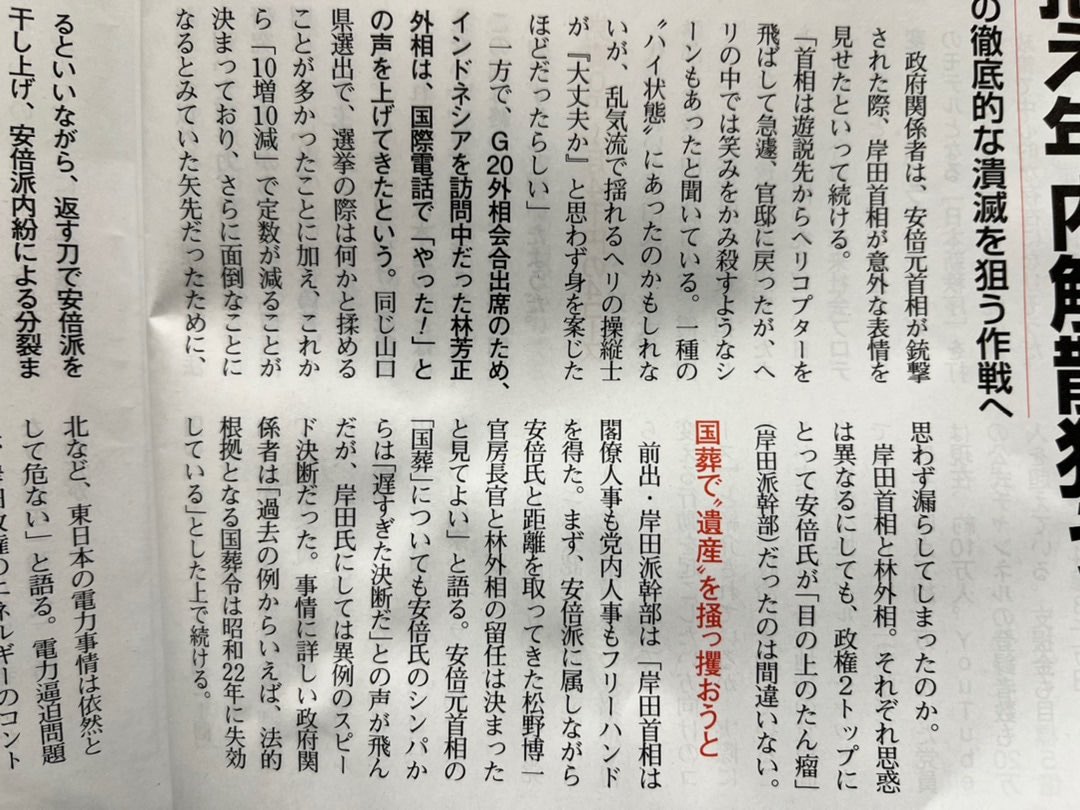 の徹底的な潰滅を狙う作戦へ
政府関係者は、安倍元首相が銃撃
された際、岸田首相が意外な表情を
見せたといって続ける。
「首相は遊説先からヘリコプターを
飛ばして急遽、官邸に戻ったが、ヘ
リの中では笑みをかみ殺すようなシ
ーンもあったと聞いている。一種の
〝ハイ状態〟にあったのかもしれな
いが、乱気流で揺れるヘリの操縦士
が『大丈夫か』と思わず身を案じた
ほどだったらしい」
一方で、G20外相会合出席のため、
インドネシアを訪問中だった林芳正
外相は、国際電話で「やった！」と
の声を上げてきたという。同じ山口
県選出で、選挙の際は何かと揉める
ことが多かったことに加え、これか
ら「10増10減」で定数が減ることが
決まっており、さらに面倒なことに
なるとみていた矢先だったために、
るといいながら、返す刀で安倍派を
干し上げ、安倍派内紛による分裂ま
思わず漏らしてしまったのか。
岸田首相と林外相。それぞれ思惑
は異なるにしても、政権2トップに
とって安倍氏が「目の上のたん瘤」
（岸田派幹部）だったのは間違いない。
国葬で〝遺産〟を掻っ攫おうと
前出・岸田派幹部は「岸田首相は
閣僚人事も党内人事もフリーハンド
を得た。まず、安倍派に属しながら
安倍氏と距離を取ってきた松野博一
官房長官と林外相の留任は決まった
と見てよい」と語る。安倍元首相の
「国葬」についても安倍氏のシンパか
らは「遅すぎた決断だ」との声が飛ん
だが、岸田氏にしては異例のスピー
ド決断だった。事情に詳しい政府関
係者は「過去の例からいえば、法的
根拠となる国葬令は昭和22年に失効
している」とした上で続ける。
北など、東日本の電力事情は依然と
して危ない」と語る。電力逼迫問題